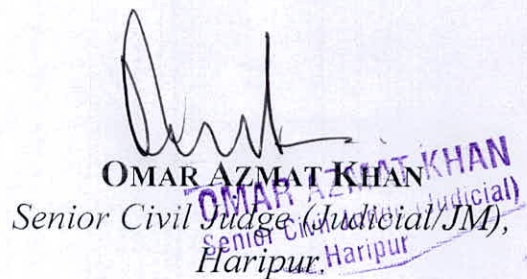 OMAR AZMAT KHAN
Senior Civil Judge (Judicial/JM),
Haripur.
OMAR AZMAT KHAN
Senior Civil Judge (Judicial)
Haripur